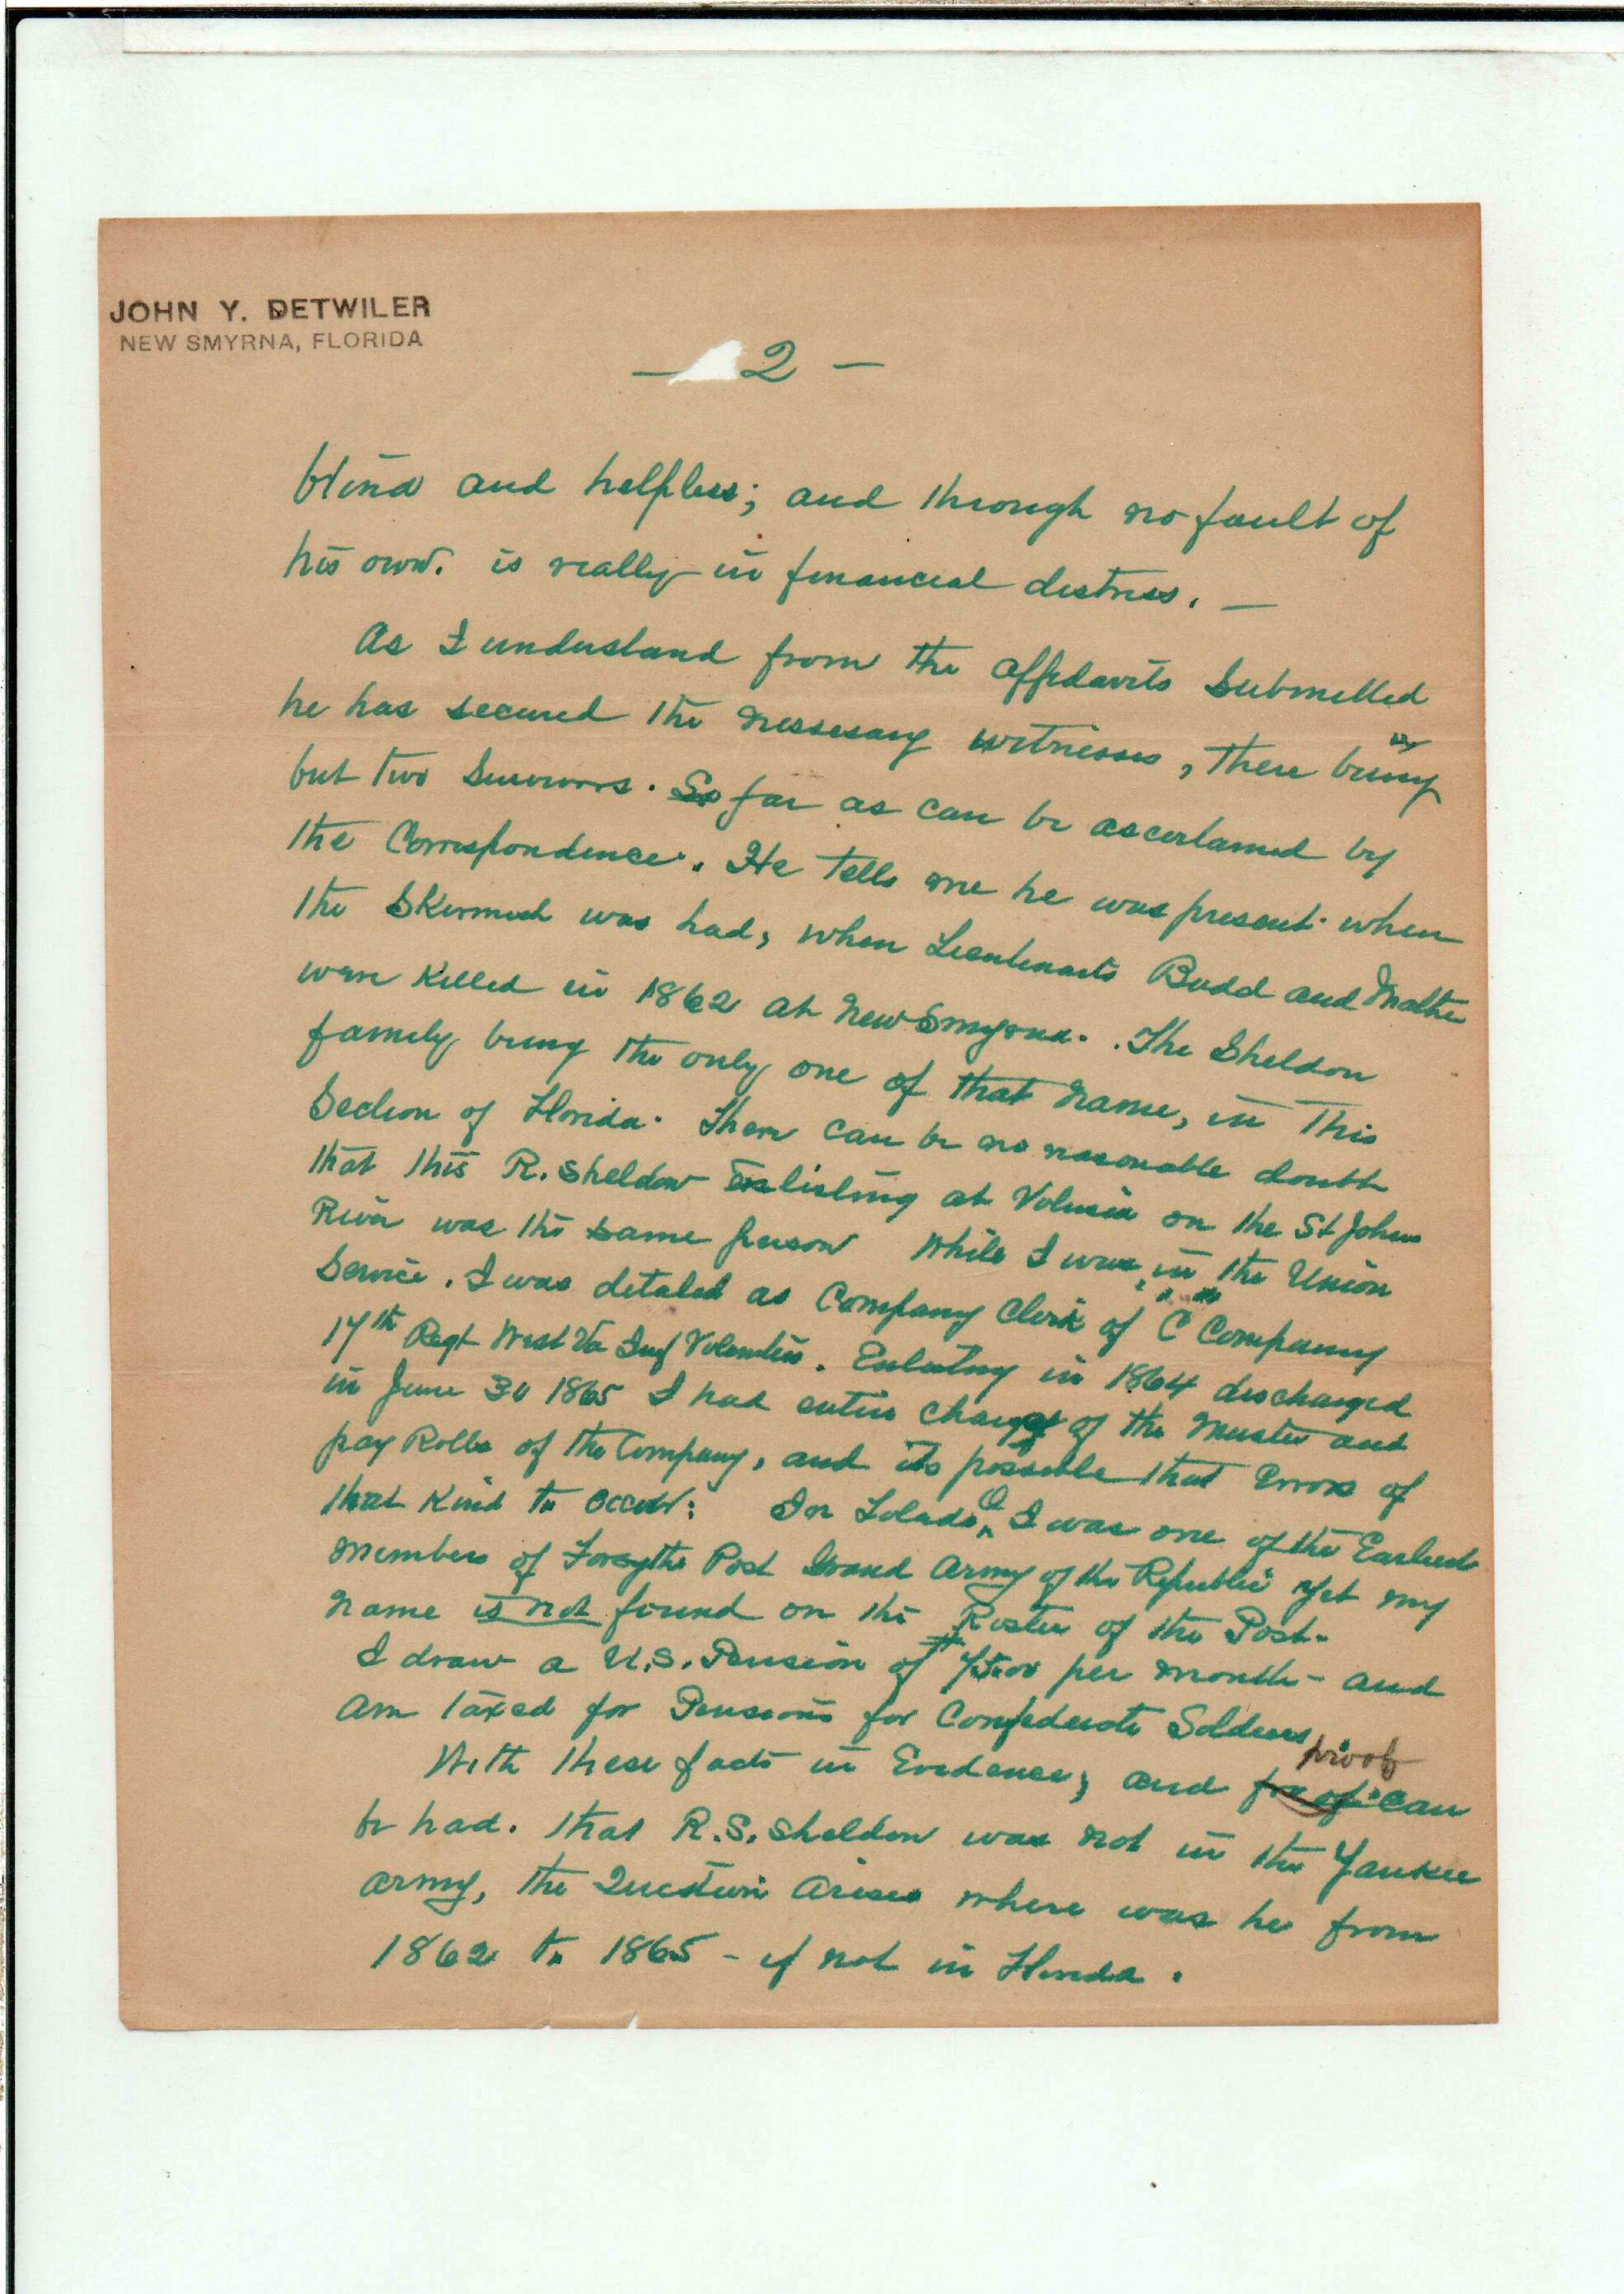 JOHN Y. DETWILER
NEW SMYRNA, FLORIDA
— 2 —
blind and helpless; and through no fault of
his own. is really in financial distress. —
As I understand from the affidavits submitted
he has secured the nessesary witnesses, there being
but two survivors. So far as can be ascertained by
the Correspondence. He tells me he was present when
the Skirmish was had, when Lieutenants Budd and Mather
were killed in 1862 at New Smyrna. The Sheldon
family being the only one of that name, in this
Section of Florida. There can be no reasonable doubt
that this R. Sheldon Enlisting at Volusia on the St Johns
River was the same person While I was in the Union
Service. I was detaled as Company Clerk of "C" Company
17th Regt West Va Inf Volenteers. Enlisting in 1864 discharged
in June 30 1865 I had entire charge of the Muster and
pay Rolls of the Company, and its possible that Errors of
that kind to occur: In Toledo, O. I was one of the Earliest
members of Forsythe Post Grand Army of the Republic yet my
name is not found on the Roster of the Post.
I draw a U.S. Pension of per month - and
am taxed for Pensions for Confederate Soldiers
With these facts in Evidence, and proof can
be had. that R.S. Sheldon was not in the Yankee
army, the Question arises where was he from
1862 to 1865 - if not in Florida.